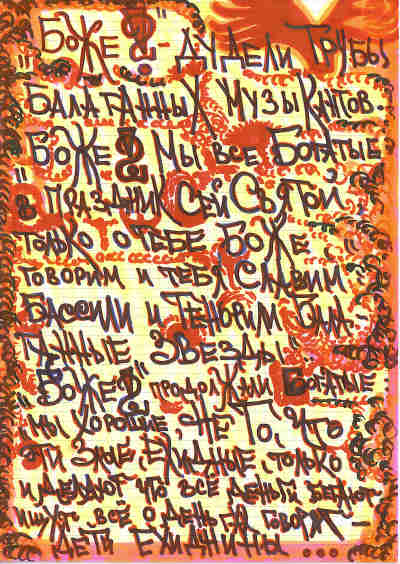 "Боже?"- дудели трубы
балаганных музыкантов.
"Боже? Мы все богатые
в праздник сей святой,
только о тебе Боже
говорим и тебя славим
Бассили и тенорим бала-
ганные звезды.
"Боже?" продолжали богатые.
мы хорошие, не то, что
эти злые, ехидные, только
и делают что все деньги бегают
ищут все о деньгах говорят-
дети ехиднины...